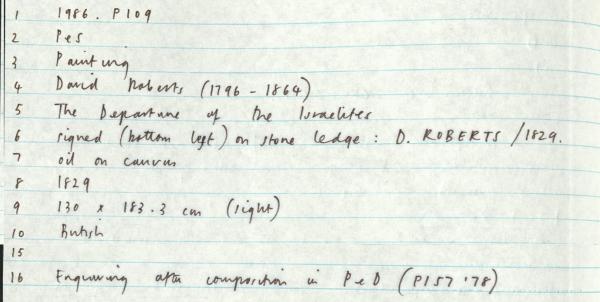 1 1986. P109
2 Pes
3 Painting
4 David Roberts (1796 - 1864)
5 The Departure of the Israelites
6 signed (bottom left) on stone ledge : D. ROBERTS / 1829.
7 oil on canvas
8 1829
9 130 x 183.3 cm (sight)
10 British
15
16 Engraving after composition in P e D (P157 '78)